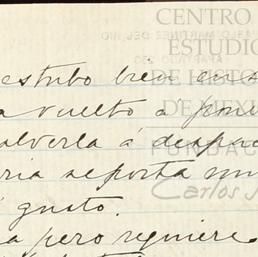 CENTRO
ESTUDIO
DE HISTO
DE MEXI
FUNDAC
Carlos S
estubo bien en s
a vuelto a poni
alverla á despac
ria se porta mu
gusto.
a pero reguiere